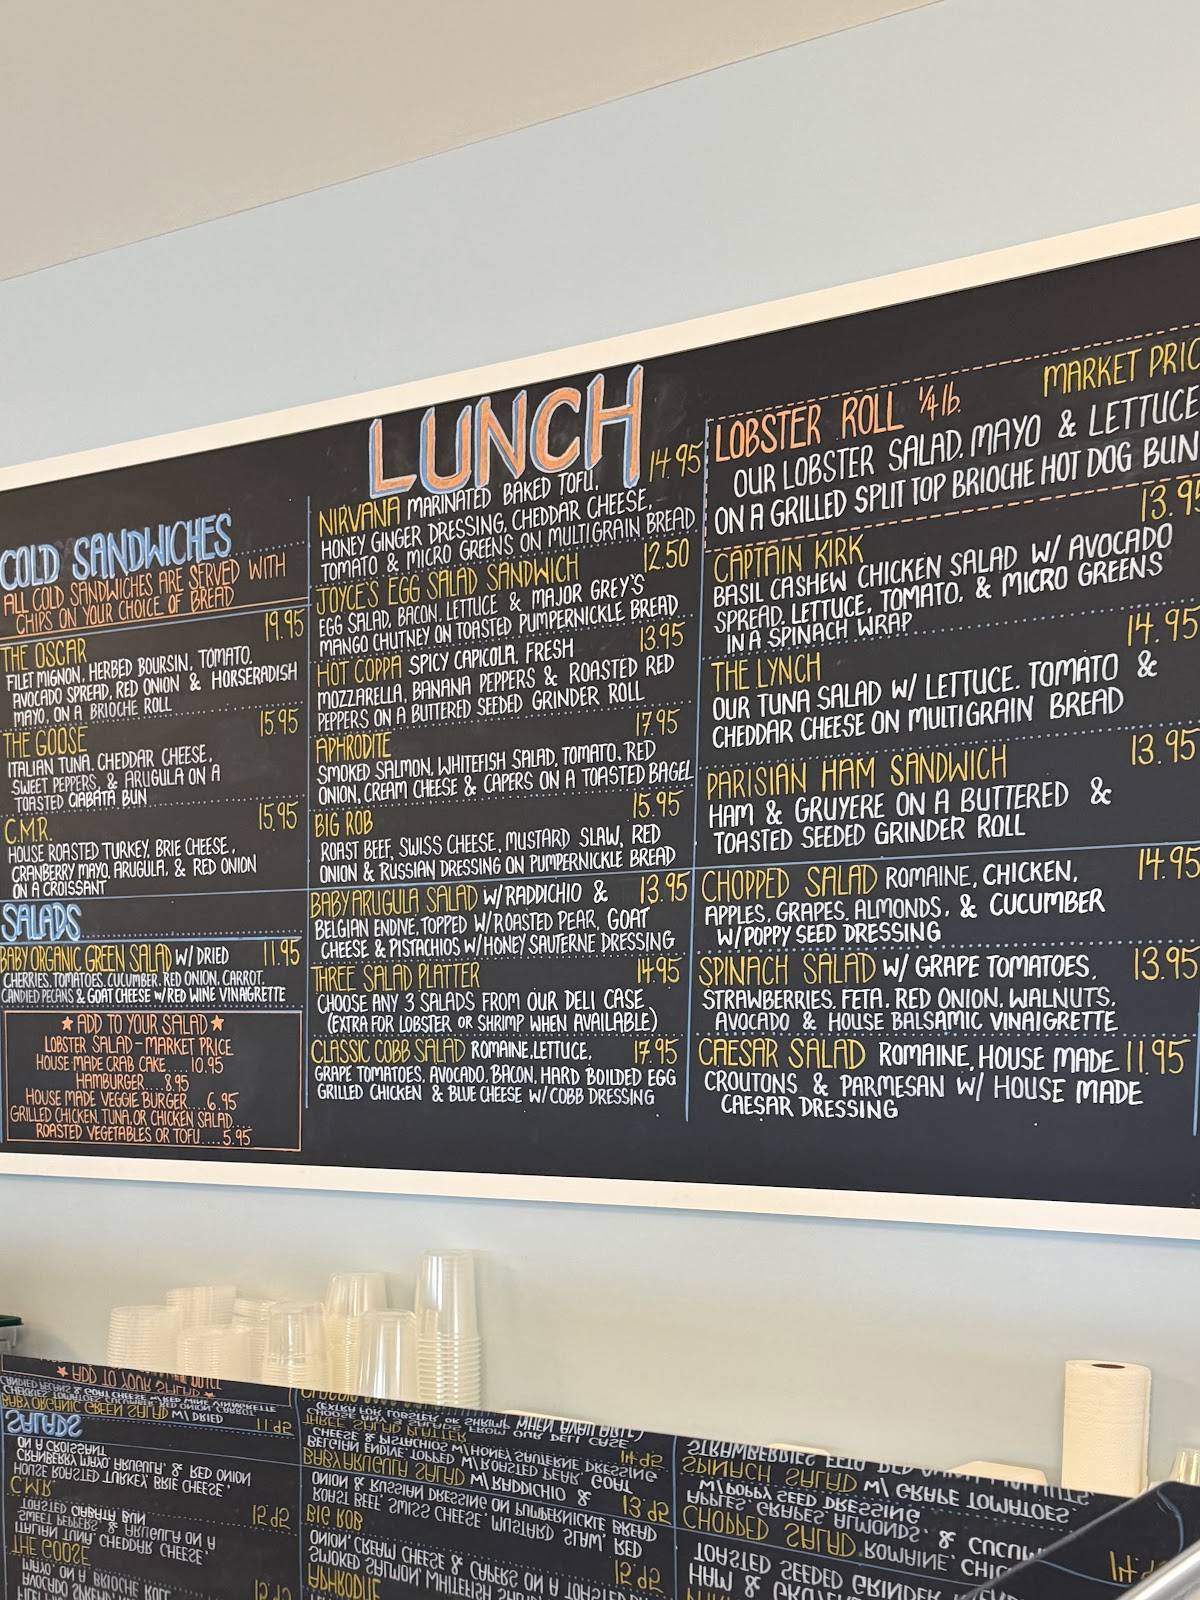 LUNCH
COLD SANDWICHES
ALL COLD SANDWICHES ARE SERVED WITH
CHIPS ON YOUR CHOICE OF BREAD
19.95
THE OSCAR
FILET MIGNON, HERBED BOURSIN, TOMATO,
AVOCADO SPREAD, RED ONION & HORSERADISH
MAYO, ON A BRIOCHE ROLL
15.95
THE GOOSE
ITALIAN TUNA, CHEDDAR CHEESE,
SWEET PEPPERS, & ARUGULA ON A
TOASTED CIABATA BUN
15.95
C.M.R.
HOUSE ROASTED TURKEY, BRIE CHEESE,
CRANBERRY MAYO, ARUGULA, & RED ONION
ON A CROISSANT
SALADS
BABY ORGANIC GREEN SALAD W/ DRIED 11.95
CHERRIES, TOMATOES, CUCUMBER, RED ONION, CARROT,
CANDIED PECANS & GOAT CHEESE W/ RED WINE VINAIGRETTE
★ ADD TO YOUR SALAD ★
LOBSTER SALAD - MARKET PRICE
HOUSE MADE CRAB CAKE....10.95
HAMBURGER....8.95
HOUSE MADE VEGGIE BURGER....6.95
GRILLED CHICKEN, TUNA, OR CHICKEN SALAD....
ROASTED VEGETABLES OR TOFU....5.95
14.95
NIRVANA MARINATED BAKED TOFU,
HONEY GINGER DRESSING, CHEDDAR CHEESE,
TOMATO & MICRO GREENS ON MULTIGRAIN BREAD
JOYCE'S EGG SALAD SANDWICH 12.50
EGG SALAD, BACON, LETTUCE & MAJOR GREY'S
MANGO CHUTNEY ON TOASTED PUMPERNICKLE BREAD
HOT COPPA SPICY CAPICOLA, FRESH 13.95
MOZZARELLA, BANANA PEPPERS & ROASTED RED
PEPPERS ON A BUTTERED SEEDED GRINDER ROLL
APHRODITE 17.95
SMOKED SALMON, WHITEFISH SALAD, TOMATO, RED
ONION, CREAM CHEESE & CAPERS ON A TOASTED BAGEL
BIG ROB 15.95
ROAST BEEF, SWISS CHEESE, MUSTARD SLAW, RED
ONION & RUSSIAN DRESSING ON PUMPERNICKLE BREAD
BABY ARUGULA SALAD W/ RADDICHIO & 13.95
BELGIAN ENDIVE, TOPPED W/ ROASTED PEAR, GOAT
CHEESE & PISTACHIOS W/ HONEY SAUTERNE DRESSING
THREE SALAD PLATTER 14.95
CHOOSE ANY 3 SALADS FROM OUR DELI CASE
(EXTRA FOR LOBSTER OR SHRIMP WHEN AVAILABLE)
CLASSIC COBB SALAD ROMAINE, LETTUCE, 17.95
GRAPE TOMATOES, AVOCADO, BACON, HARD BOILDED EGG
GRILLED CHICKEN & BLUE CHEESE W/ COBB DRESSING
MARKET PRIC
LOBSTER ROLL 1/4 lb.
OUR LOBSTER SALAD, MAYO & LETTUCE
ON A GRILLED SPLIT TOP BRIOCHE HOT DOG BUN
13.95
CAPTAIN KIRK
BASIL CASHEW CHICKEN SALAD W/ AVOCADO
SPREAD, LETTUCE, TOMATO, & MICRO GREENS
IN A SPINACH WRAP
14.95
THE LYNCH
OUR TUNA SALAD W/ LETTUCE, TOMATO &
CHEDDAR CHEESE ON MULTIGRAIN BREAD
13.95
PARISIAN HAM SANDWICH
HAM & GRUYERE ON A BUTTERED &
TOASTED SEEDED GRINDER ROLL
CHOPPED SALAD ROMAINE, CHICKEN, 14.95
APPLES, GRAPES, ALMONDS, & CUCUMBER
W/ POPPY SEED DRESSING
SPINACH SALAD W/ GRAPE TOMATOES, 13.95
STRAWBERRIES, FETA, RED ONION, WALNUTS,
AVOCADO & HOUSE BALSAMIC VINAIGRETTE
CAESAR SALAD ROMAINE, HOUSE MADE 11.95
CROUTONS & PARMESAN W/ HOUSE MADE
CAESAR DRESSING